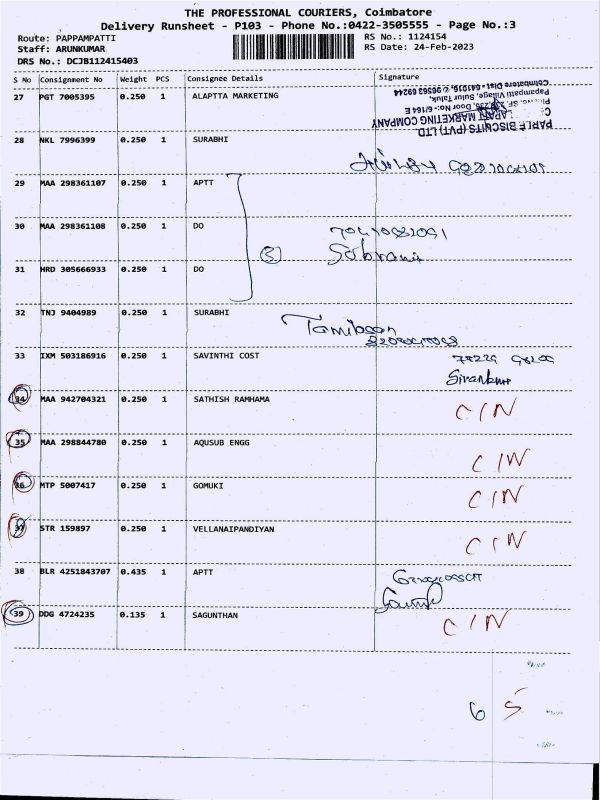 THE PROFESSIONAL COURIERS, Coimbatore
Delivery Runsheet - P103 - Phone No.:0422-3505555 - Page No.:3
Route: PAPPAMPATTI
RS No.: 1124154
Staff: ARUNKUMAR
RS Date: 24-Feb-2023
DRS No.: DCJB112415403
S No Consignment No Weight PCS Consignee Details Signature
27 PGT 7005395 0.250 1 ALAPTTA MARKETING
PARLE BISCUITS (PVT) LTD
MARKETING COMPANY
Pappampatti Village, Sulur Taluk,
28 NKL 7996399 0.250 1 SURABHI
29 MAA 298361107 0.250 1 APTT
30 MAA 298361108 0.250 1 DO
31 HRD 305666933 0.250 1 DO
32 TNJ 9404989 0.250 1 SURABHI
33 IXM 503186916 0.250 1 SAVINTHI COST
34 MAA 942704321 0.250 1 SATHISH RAMHAMA C/N
35 MAA 298844780 0.250 1 AQUSUB ENGG C/N
36 MTP 5007417 0.250 1 GOMUKI C/N
37 STR 159897 0.250 1 VELLANAIPANDIYAN C/N
38 BLR 4251843707 0.435 1 APTT
39 DDG 4724235 0.135 1 SAGUNTHAN C/N
6 5